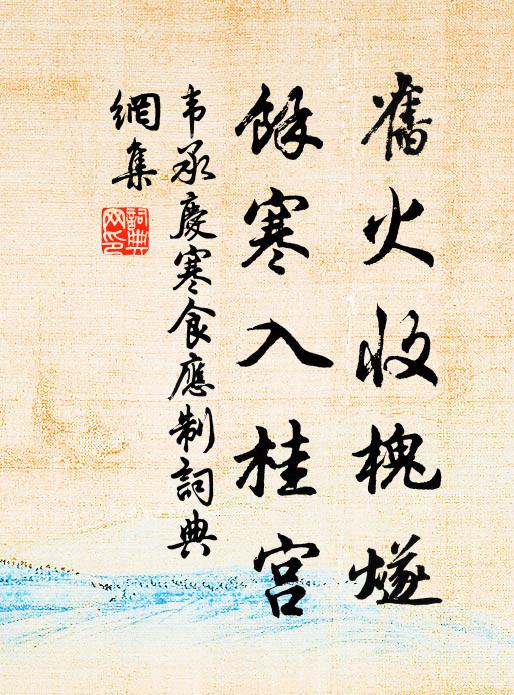 舊火收槐燧
餘寒入桂宮
韦承慶寒食應制詞典
網集
詞典
网印